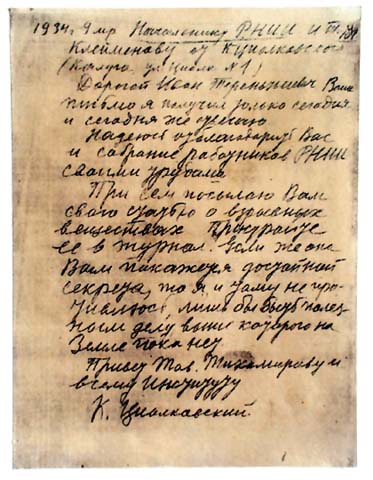 1934, 9 мр Начальнику РНИИ и т.
Клейменову от К Циолковского
(Калуга ул Циолк №1)
Дорогой Иван Терентьевич Ваше
письмо я получил только сегодня
и сегодня же отвечаю
Надеюсь отблагодарить Вас
и собрание работников РНИИ
своими трудами
При сем посылаю Вам
свою статью о взрывных
веществах
ее в журнал. Если же она
Вам покажется достойной
секрета, то я и тому не про-
тивлюсь, лишь бы быть полез-
ным делу выше которого на
Земле пока нет
Привет Тов. Тихомирову и
всему Институту
К. Циолковский